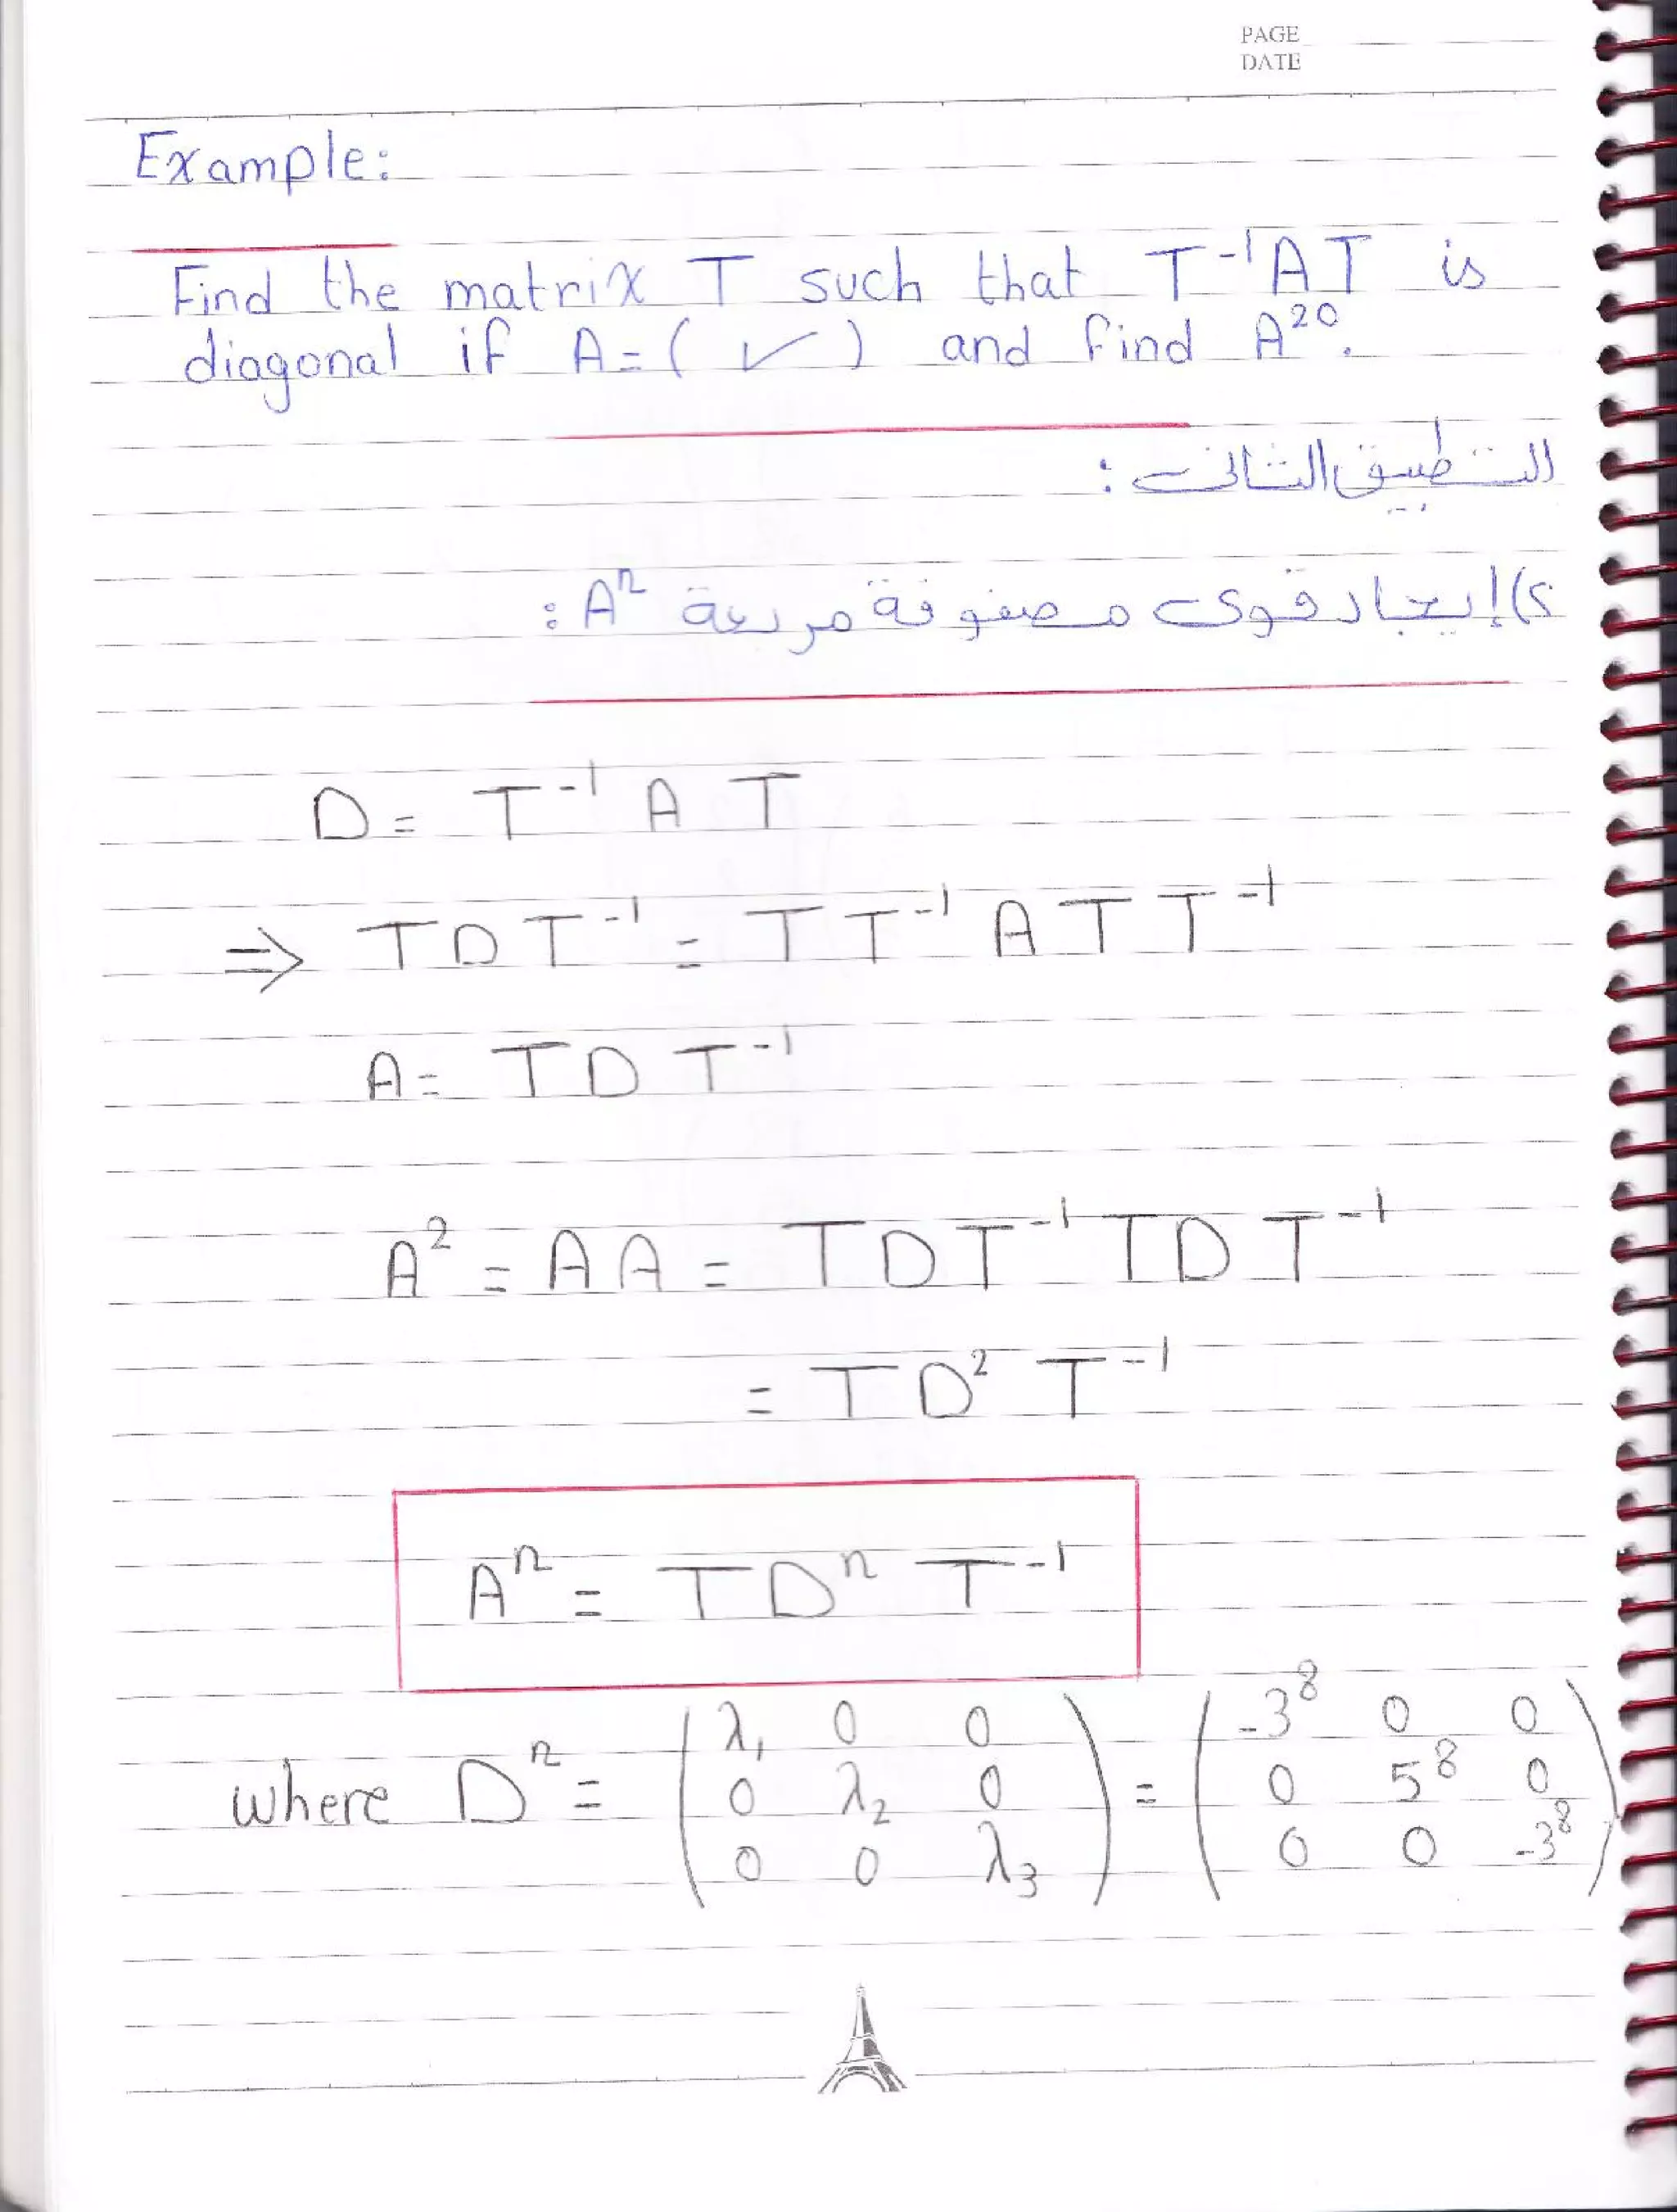 PAGE
DATE
Example:
Find the matrix T such that T⁻¹AT is
diagonal if A = ( ✓ ) and find A²⁰.
التطبيق الثاني :
٢) إيجاد قوى مصفوفة مربعة Aⁿ :
D = T⁻¹ A T
⇒ T D T⁻¹ = T T⁻¹ A T T⁻¹
A = T D T⁻¹
A² = A A = T D T⁻¹ T D T⁻¹
= T D² T⁻¹
Aⁿ = T Dⁿ T⁻¹
λ₁ 0 0 -3⁸ 0 0
where Dⁿ = ( 0 λ₂ 0 ) = ( 0 5⁸ 0 )
0 0 λ₃ 0 0 -3⁸